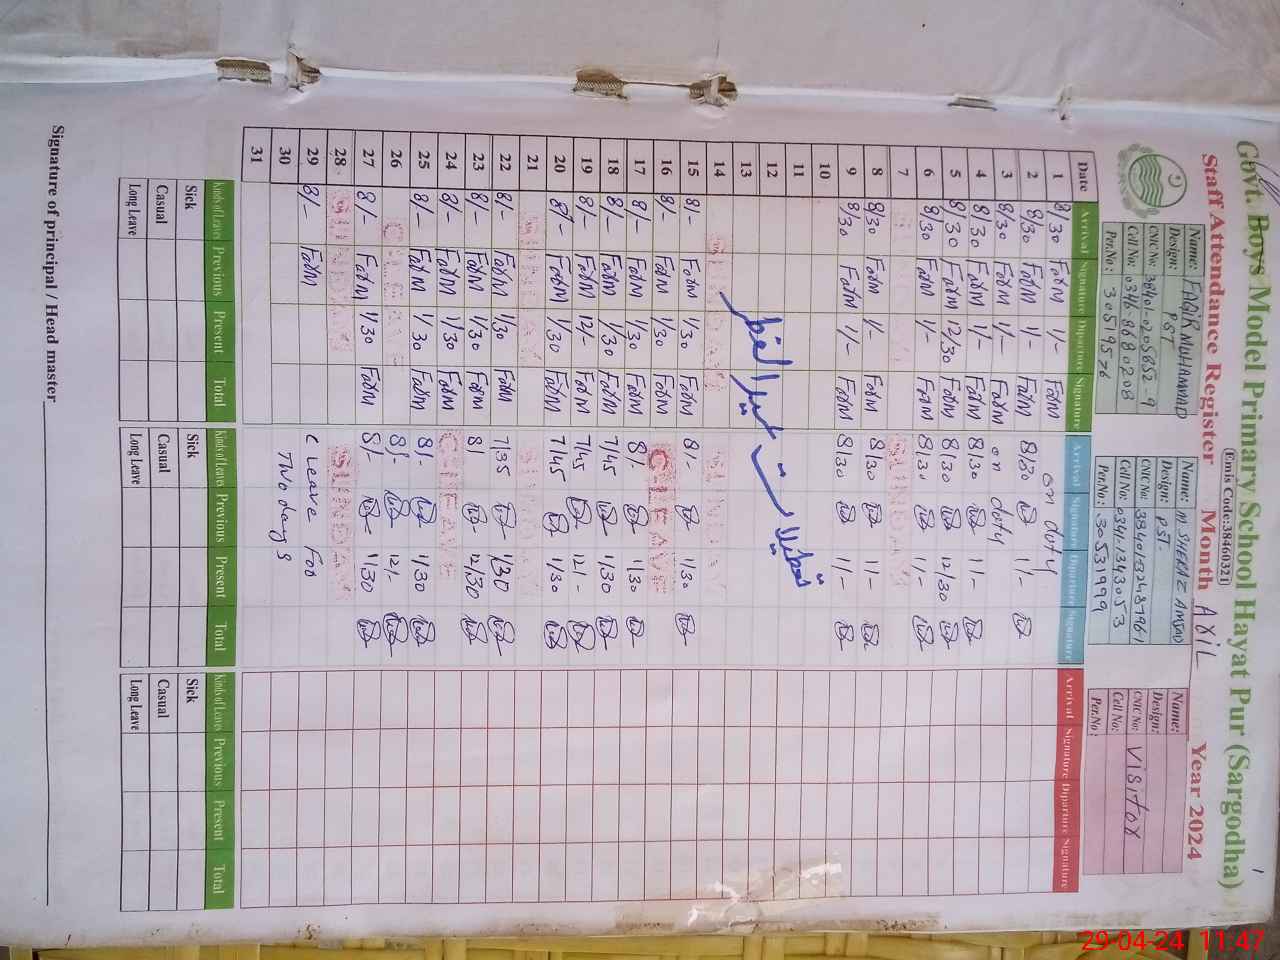 Govt. Boys Model Primary School Hayat Pur (Sargodha)
Emis Code:38460321
Staff Attendance Register Month April Year 2024
Name: FAQIR MUHAMMAD
Design: PST
CNIC No: 38401-0205852-9
Cell No: 0346-8680208
Per.No: 30519576
Name: M. SHERAZ AMJAD
Design: PST-
CNIC No: 38401-1324879-61
Cell No: 0341-1343053
Per.No: 30531999
Name:
Design:
CNIC No: Visitor
Cell No:
Per.No:
Date Arrival Signature Diparture Signature Arrival Signature Diparture Signature Arrival Signature Diparture Signature
1 8/30 1/- on duty
2 8/30 1/- 8/30 1/-
3 8/30 1/- on duty
4 8/30 1/- 8/30 1/-
5 8/30 12/30 8/30 12/30
6 8/30 1/- 8/30 1/-
7 SUNDAY
8 8/30 1/- 8/30 1/-
9 8/30 1/- 8/30 1/-
10
11
12 تعطیلات عید الفطر
13
14
15 8/- 1/30 8/- 1/30
16 8/- 1/30 C.LEAVE
17 8/- 1/30 8/- 1/30
18 8/- 1/30 7/45 1/30
19 8/- 12/- 7/45 12/-
20 8/- 1/30 7/45 1/30
21
22 8/- 1/30 7/35 1/30
23 8/- 1/30 8/ 12/30
24 8/- 1/30 C.LEAVE
25 8/- 1/30 8/- 1/30
26 8/- 12/-
27 8/- 1/30 8/- 1/30
28 SUNDAY
29 8/- C Leave For
30 Two days
31
Kinds of Leaves Previous Present Total Kinds of Leaves Previous Present Total Kinds of Leaves Previous Present Total
Sick Sick Sick
Casual Casual Casual
Long Leave Long Leave Long Leave
Signature of principal / Head master
29-04-24 11:47